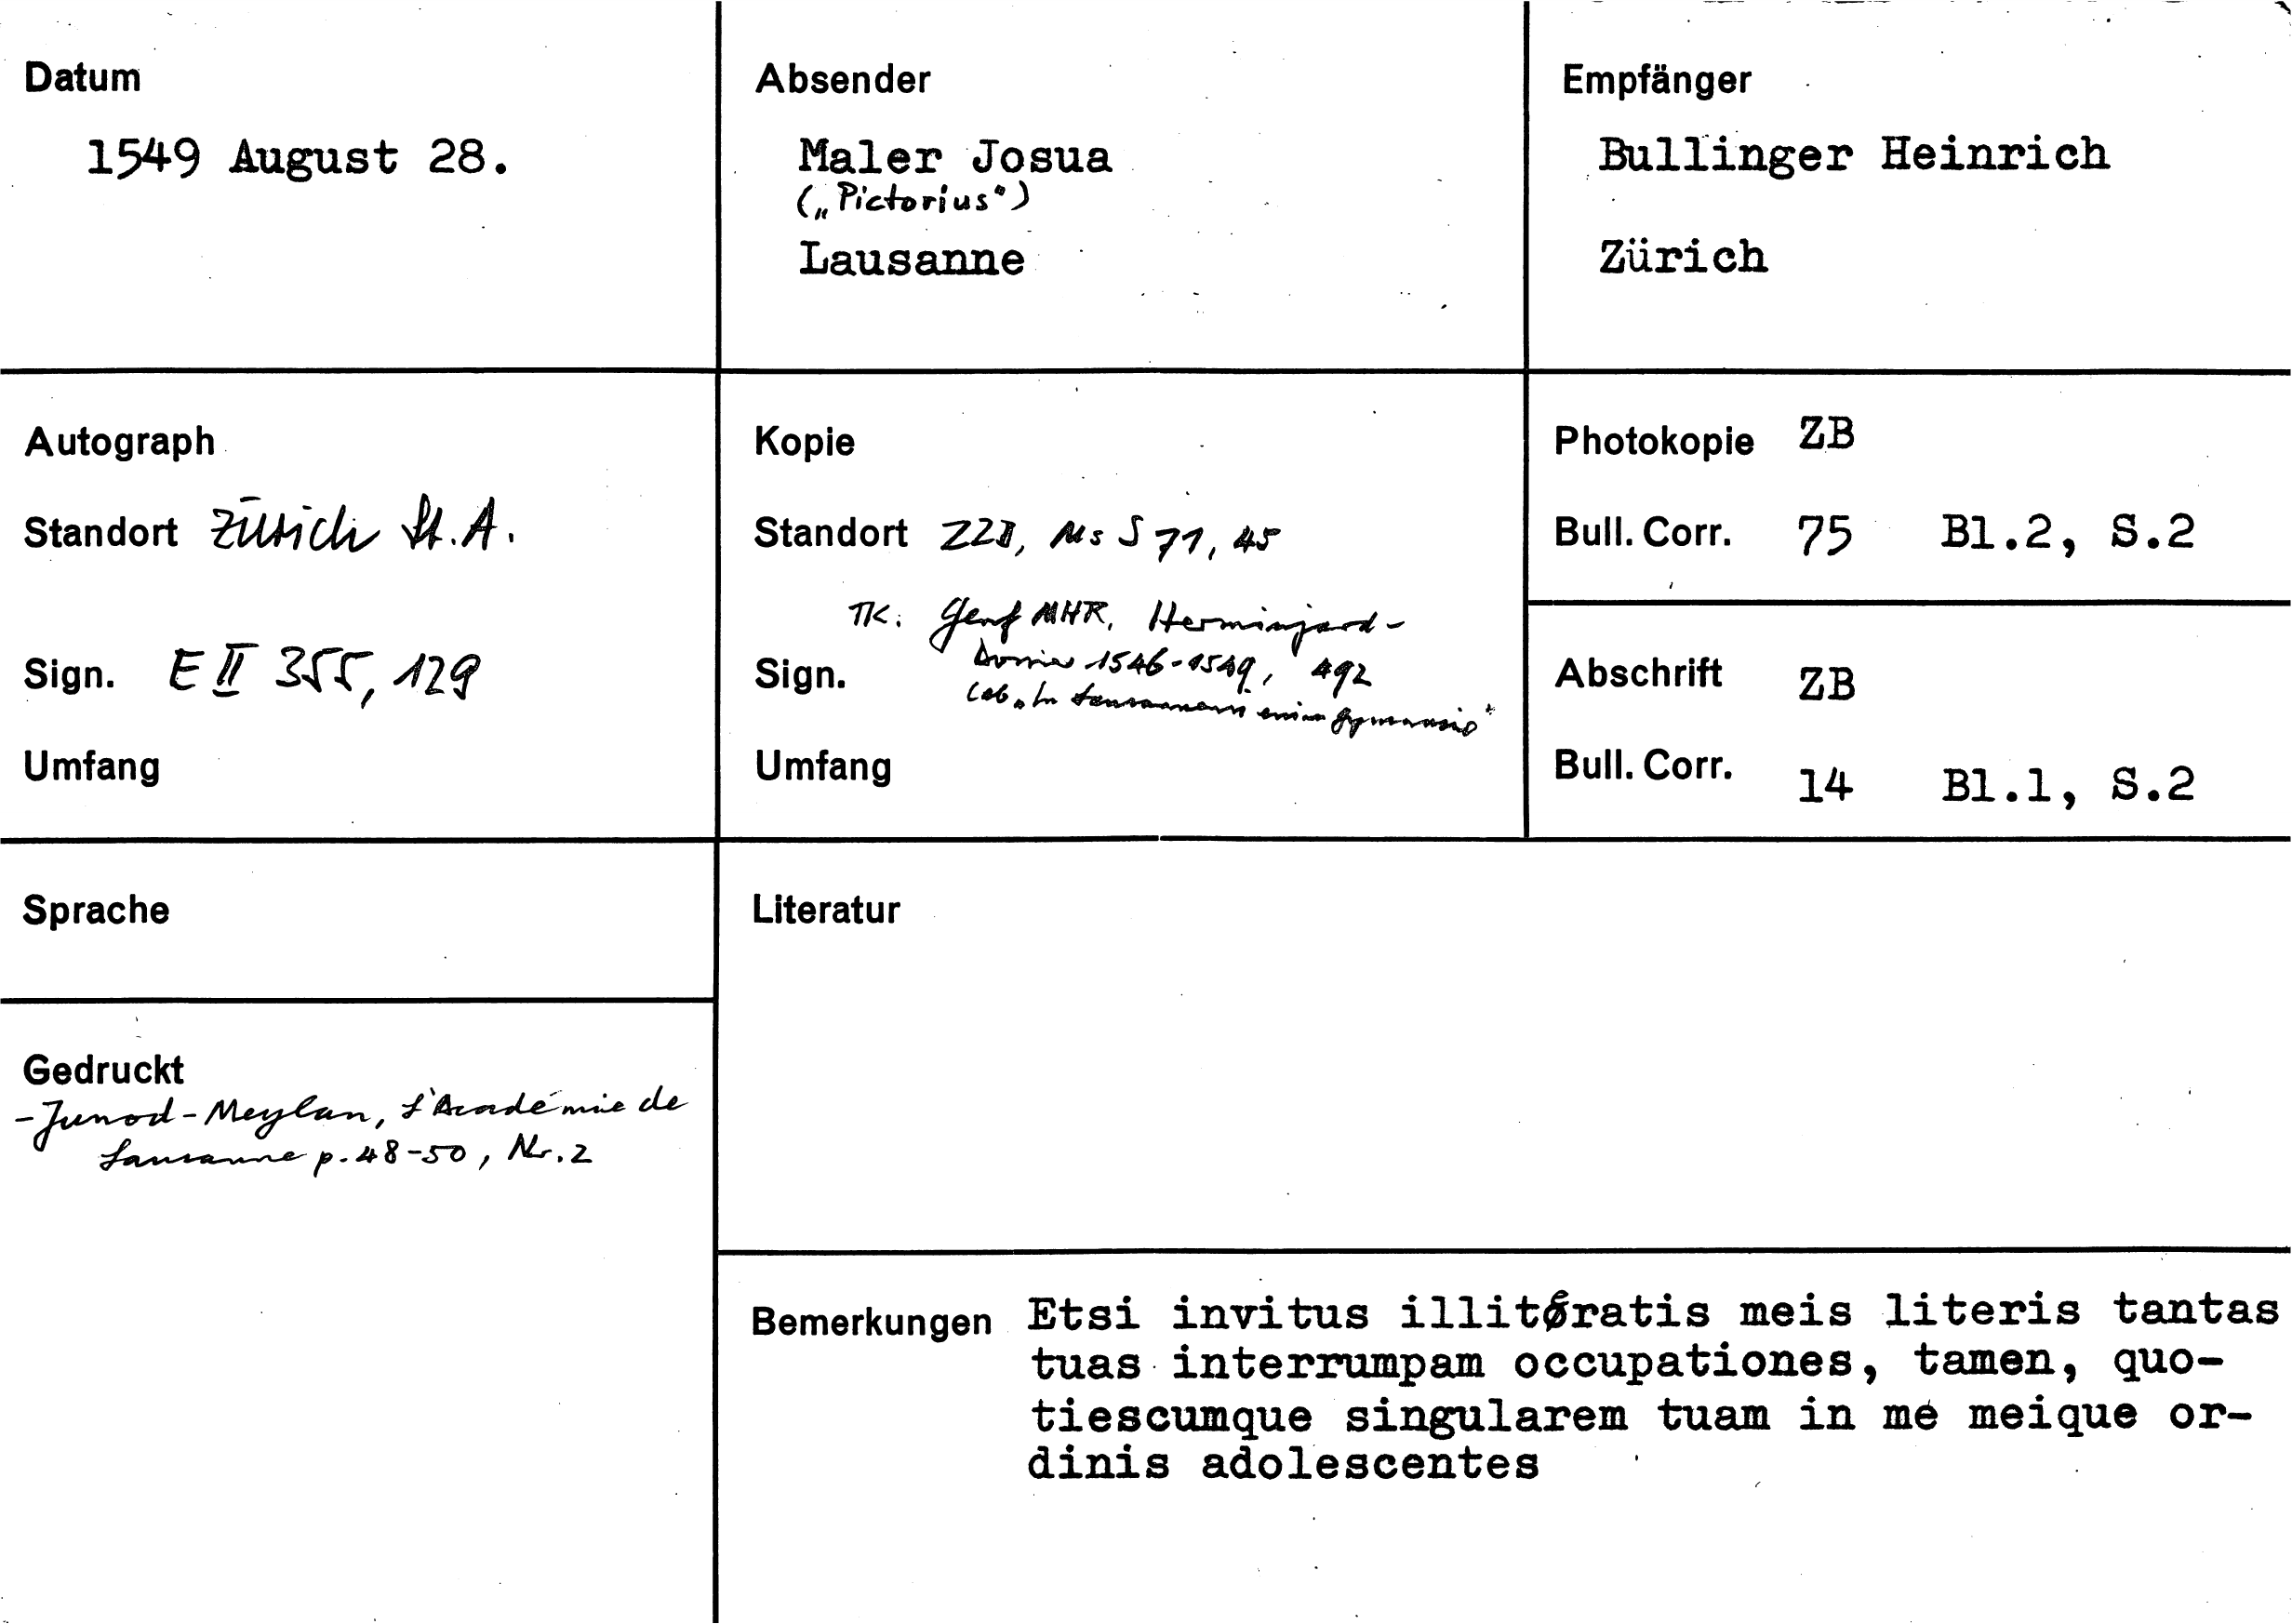 Datum
1549 August 28.
Absender
Maler Josua
(„Pictorius“)
Lausanne
Empfänger
Bullinger Heinrich
Zürich
Autograph
Standort Zürich St.A.
Sign. E II 355, 129
Umfang
Kopie
Standort ZZB, Ms S 71, 45
TK: Genf MHR, Herminjard-
1546-1549, 492
Sign.
Umfang
Photokopie ZB
Bull. Corr. 75 Bl.2, S.2
Abschrift ZB
Bull. Corr. 14 Bl.1, S.2
Sprache
Literatur
Gedruckt
- Junod-Meylan, L'Académie de
Lausanne p. 48-50, Nr. 2
Bemerkungen Etsi invitus illiteratis meis literis tantas
tuas interrumpam occupationes, tamen, quo-
tiescumque singularem tuam in me meique or-
dinis adolescentes